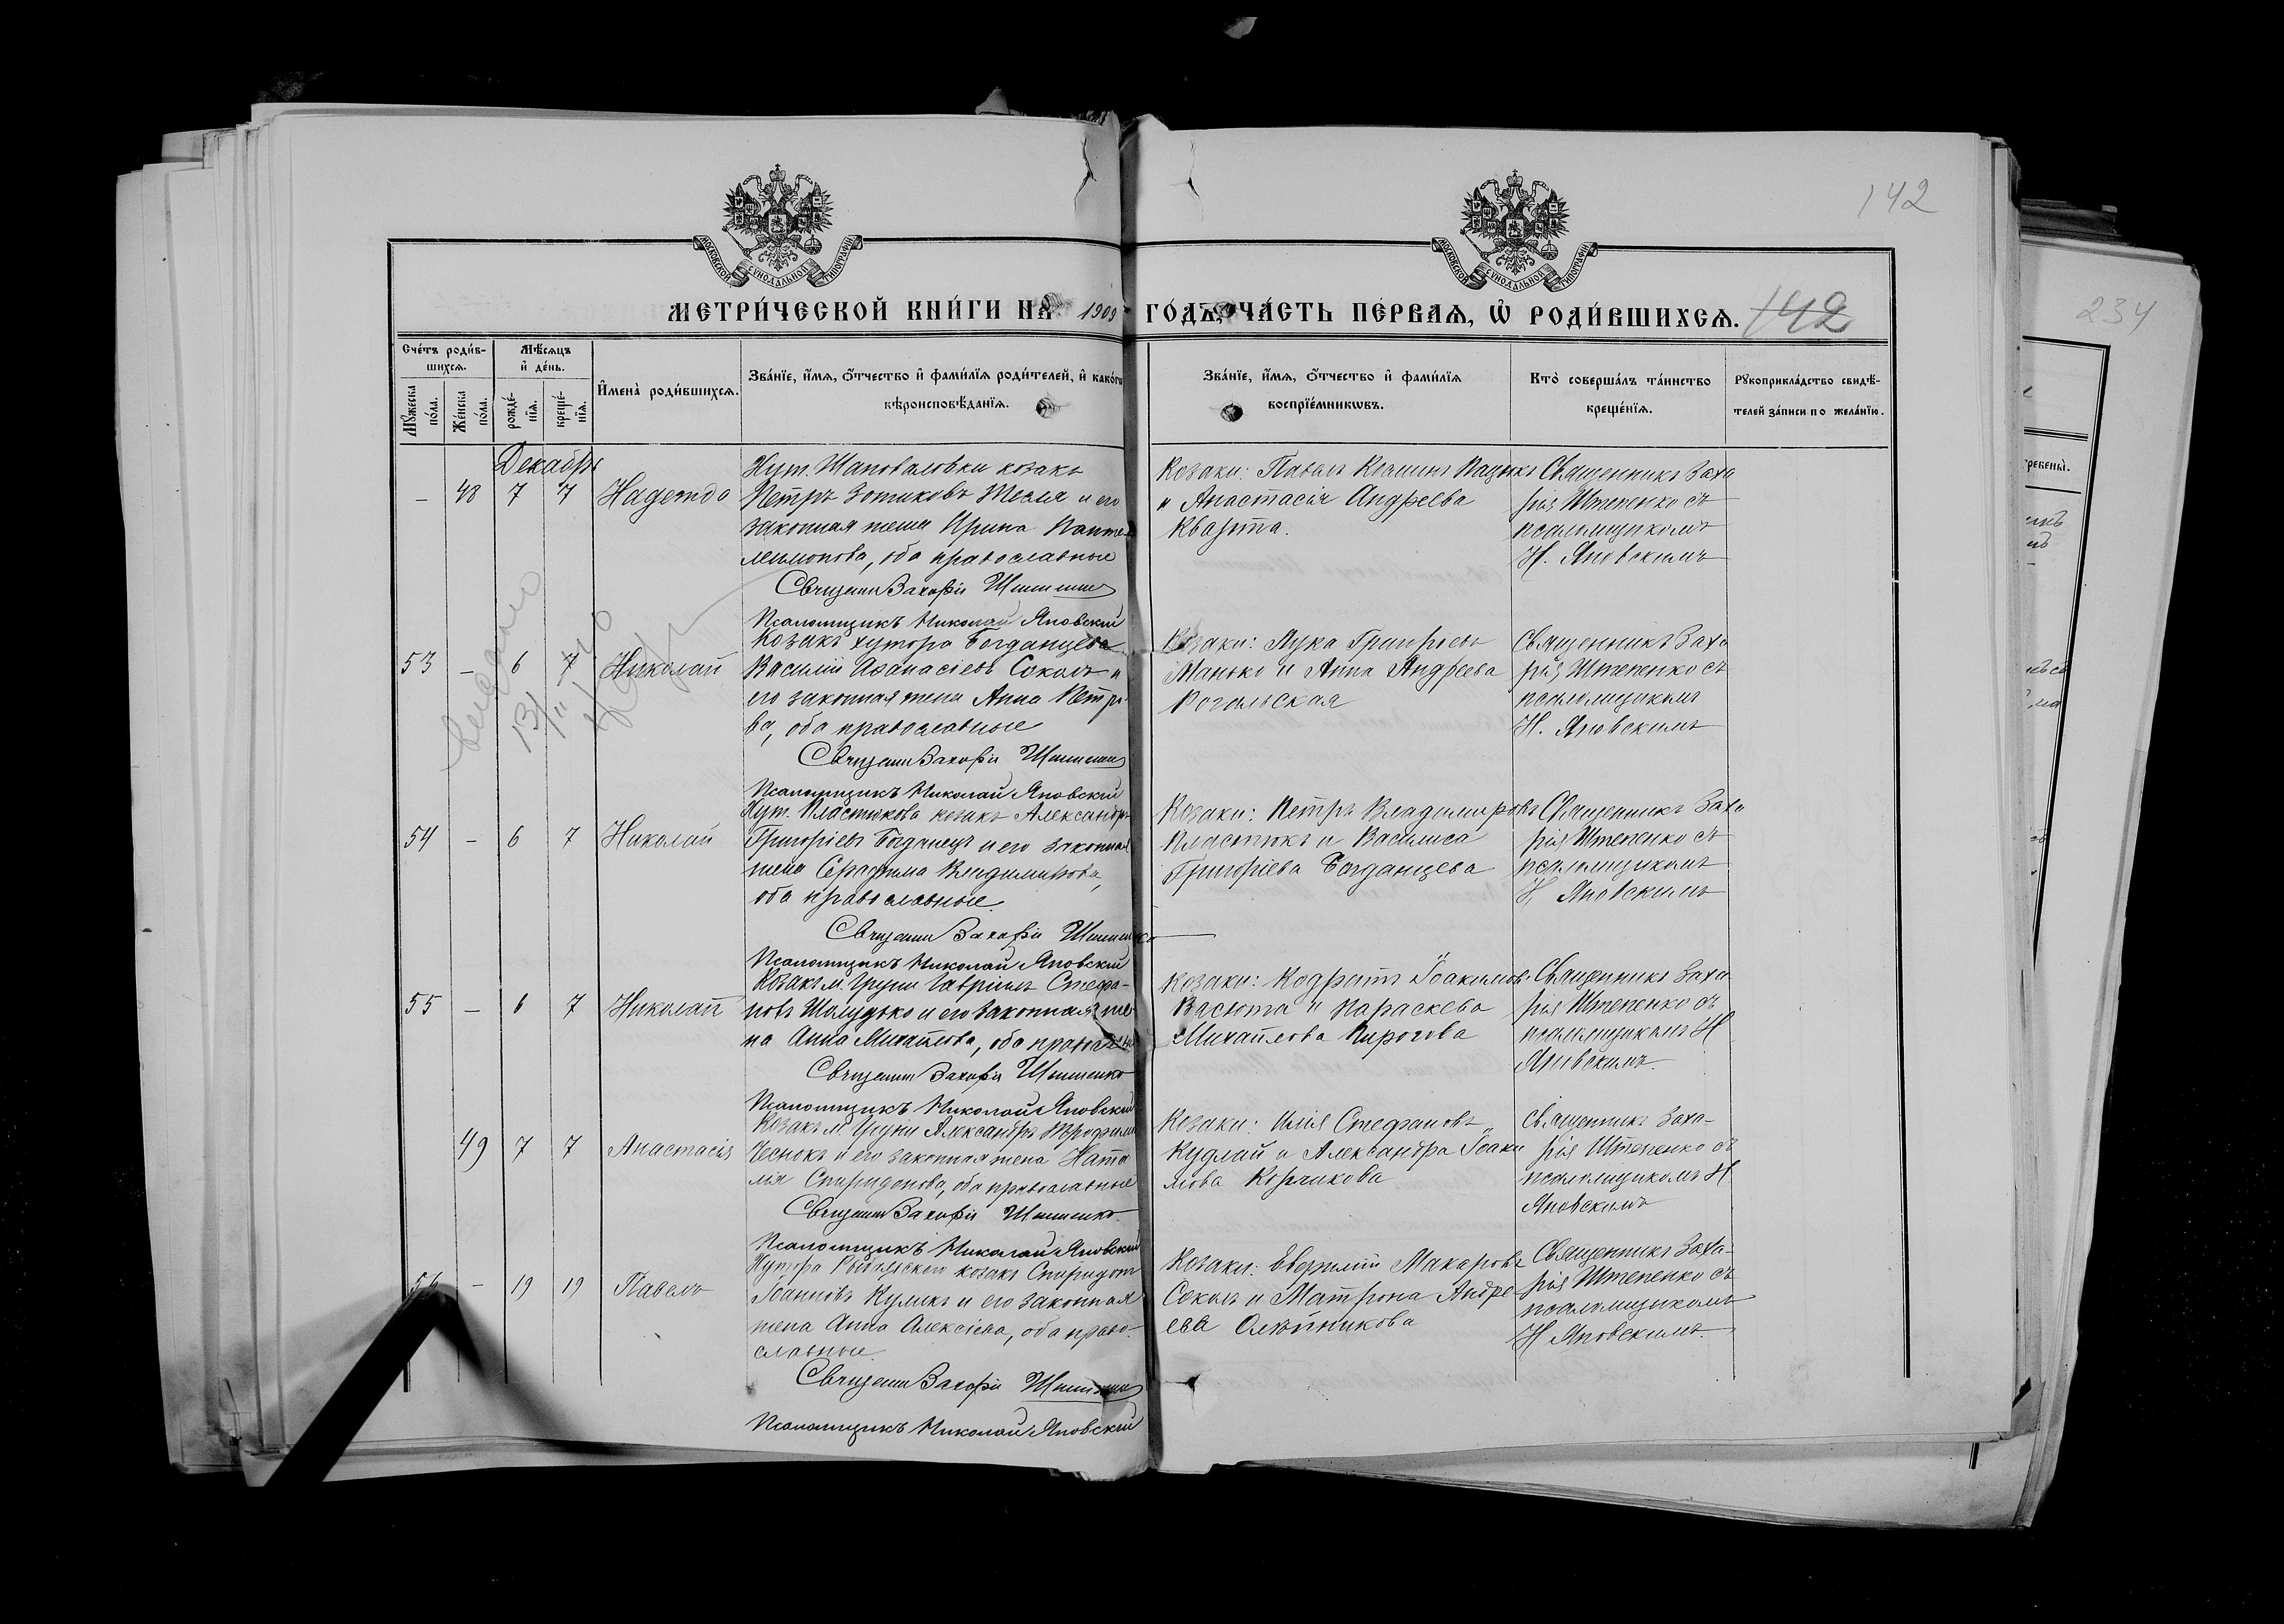 142
МОСКОВСКОЙ СѴНОДАЛЬНОЙ ТИПОГРАФІИ
МОСКОВСКОЙ СѴНОДАЛЬНОЙ ТИПОГРАФІИ
МЕТРИ́ЧЕСКОЙ КНИ́ГИ НА 1909 ГОДЪ, ЧА́СТЬ ПЕ́РВАѦ, Ѡ РОДИ́ВШИХСѦ. 142
234
Сче́тъ роди́в-
шихсѧ.
Мѣ́сѧцъ
и҆ де́нь.
Мꙋжеска по́ла.
Же́нска по́ла.
рожде́-
нїѧ.
креще́-
нїѧ.
И҆мена̀ роди́вшихсѧ.
Зва́нїе, и҆́мѧ, ѻ҆́тчество и҆ фами́лїѧ роди́телей, и҆ како́гѡ
вѣроисповѣ́данїѧ.
Зва́нїе, и҆́мѧ, ѻ҆́тчество и҆ фами́лїѧ
воспрїе́мникѡвъ.
Кто̀ соверша́лъ та́инство
креще́нїѧ.
Рꙋкоприкла́дство свидѣ́-
телей за́писи по жела́нїю.
Декабрь
– 48 7 7 Надежда
Хут. Шаповаловки козакъ
Петръ Зотиковъ и его
законная жена Ирина Панте
леимонова, оба православные
Священ Захарій Штепенко
Псаломщикъ Николай Яновскій
Козаки: Павелъ
и Анастасія Андреева
Кварта.
Священникъ Заха
рія Штепенко съ
псаломщикомъ
Н. Яновскимъ
53 – 6 7 Николай
Козакъ хутора Богданцева
Василій Афанасіевъ Соколъ и
его законная жена Анна Петро
ва, оба православные
Священ Захарій Штепенко
Псаломщикъ Николай Яновскій
Козаки: Лука Григоріевъ
Манько и Анна Андреева
Рогальская
Священникъ Заха
рія Штепенко съ
псаломщикомъ
Н. Яновскимъ
54 – 6 7 Николай
Хут. Пластюкова козакъ Александръ
Григоріевъ Богданецъ и его законная
жена Серафима Владимирова,
оба православные.
Священ Захарій Штепенко
Псаломщикъ Николай Яновскій
Козаки: Петръ Владимировъ
Пластюкъ и Василиса
Григоріева Богданцева
Священникъ Заха
рія Штепенко съ
псаломщикомъ
Н. Яновскимъ
55 – 6 7 Николай
Козакъ м. Груни Гавріилъ Стефа-
новъ Шолудько и его законная же
на Анна Михайлова, оба православн
Священ Захарій Штепенко
Псаломщикъ Николай Яновскій
Козаки: Кодратъ Іоакимовъ
Васюта и Параскева
Михайлова Пирогова
Священникъ Заха-
рія Штепенко съ
псаломщикомъ Н
Яновскимъ.
49 7 7 Анастасія
Козакъ м. Груни Александръ
Чеснокъ и его законная жена Ната
лія Спиридонова, оба православные
Священ Захарій Штепенко
Псаломщикъ Николай Яновскій
Козаки: Илія Стефановъ
Кудлай и Александра Іоаки
мова Корчакова
Священникъ Заха-
рія Штепенко съ
псаломщикомъ Н
Яновскимъ
56 – 19 19 Павелъ
Хутора козакъ Спиридонъ
Іоанновъ Куликъ и его законная
жена Анна Алексіева, оба право-
славные
Священ Захарій Штепенко
Псаломщикъ Николай Яновскій
Козаки: Евфимій Макаровъ
Соколъ и Матрона Андре-
ева Олѣйникова
Священникъ Заха-
рія Штепенко съ
псаломщикомъ
Н Яновскимъ.